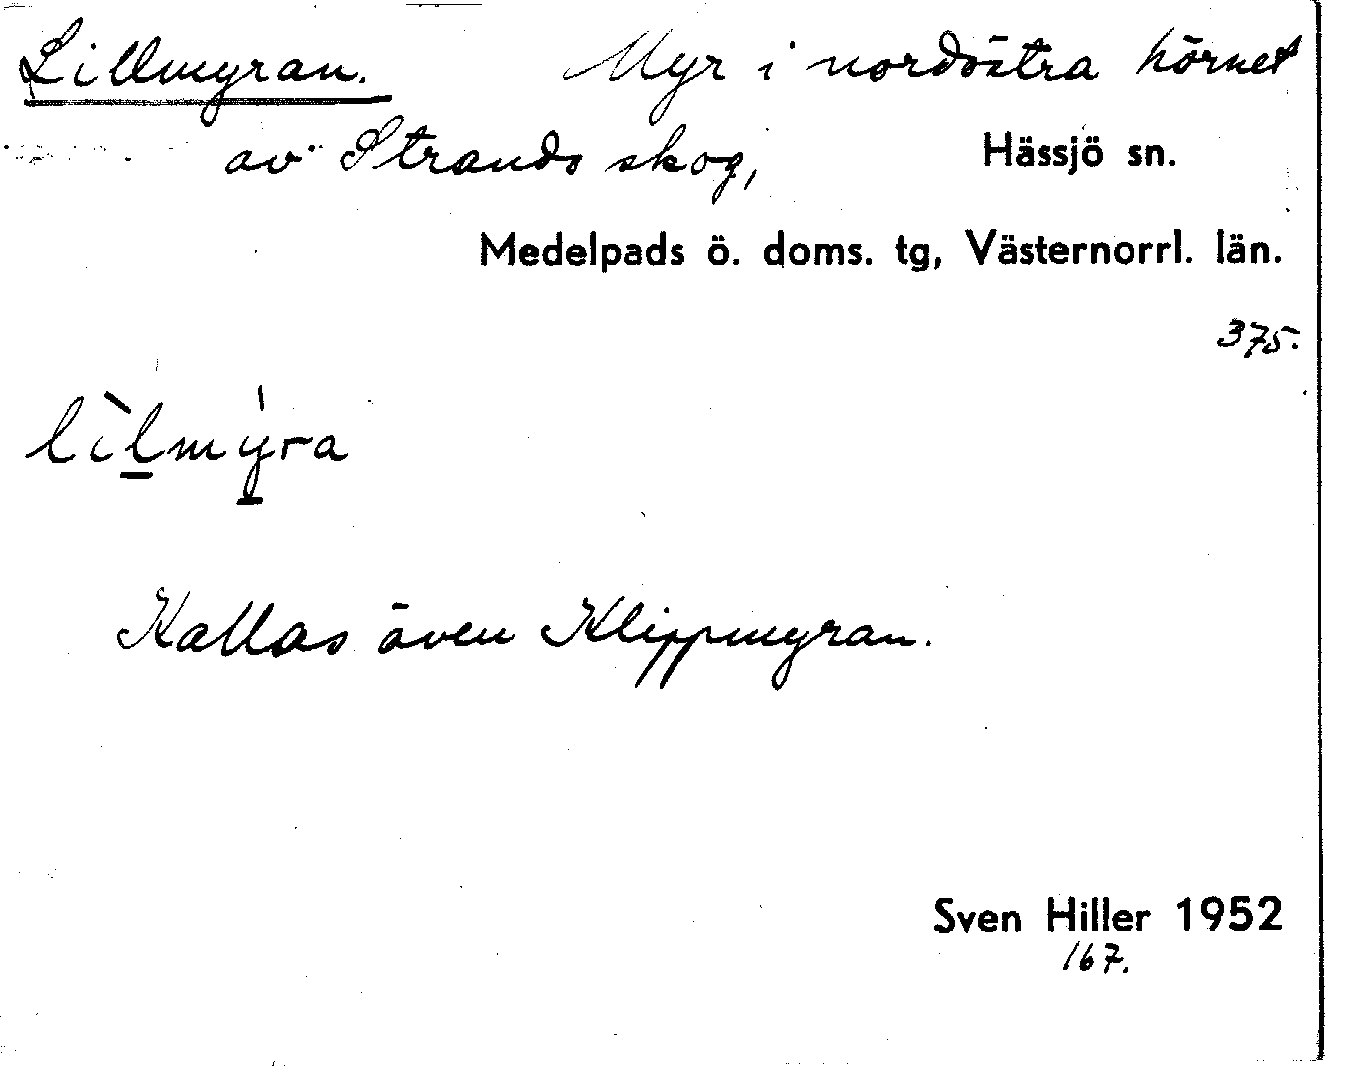 Lillmyran. Myr i nordöstra hörnet
av Strands skog, Hässjö sn.
Medelpads ö. doms. tg, Västernorrl. län.
375.
lìlmýra
Kallas även Klippmyran.
Sven Hiller 1952
167.